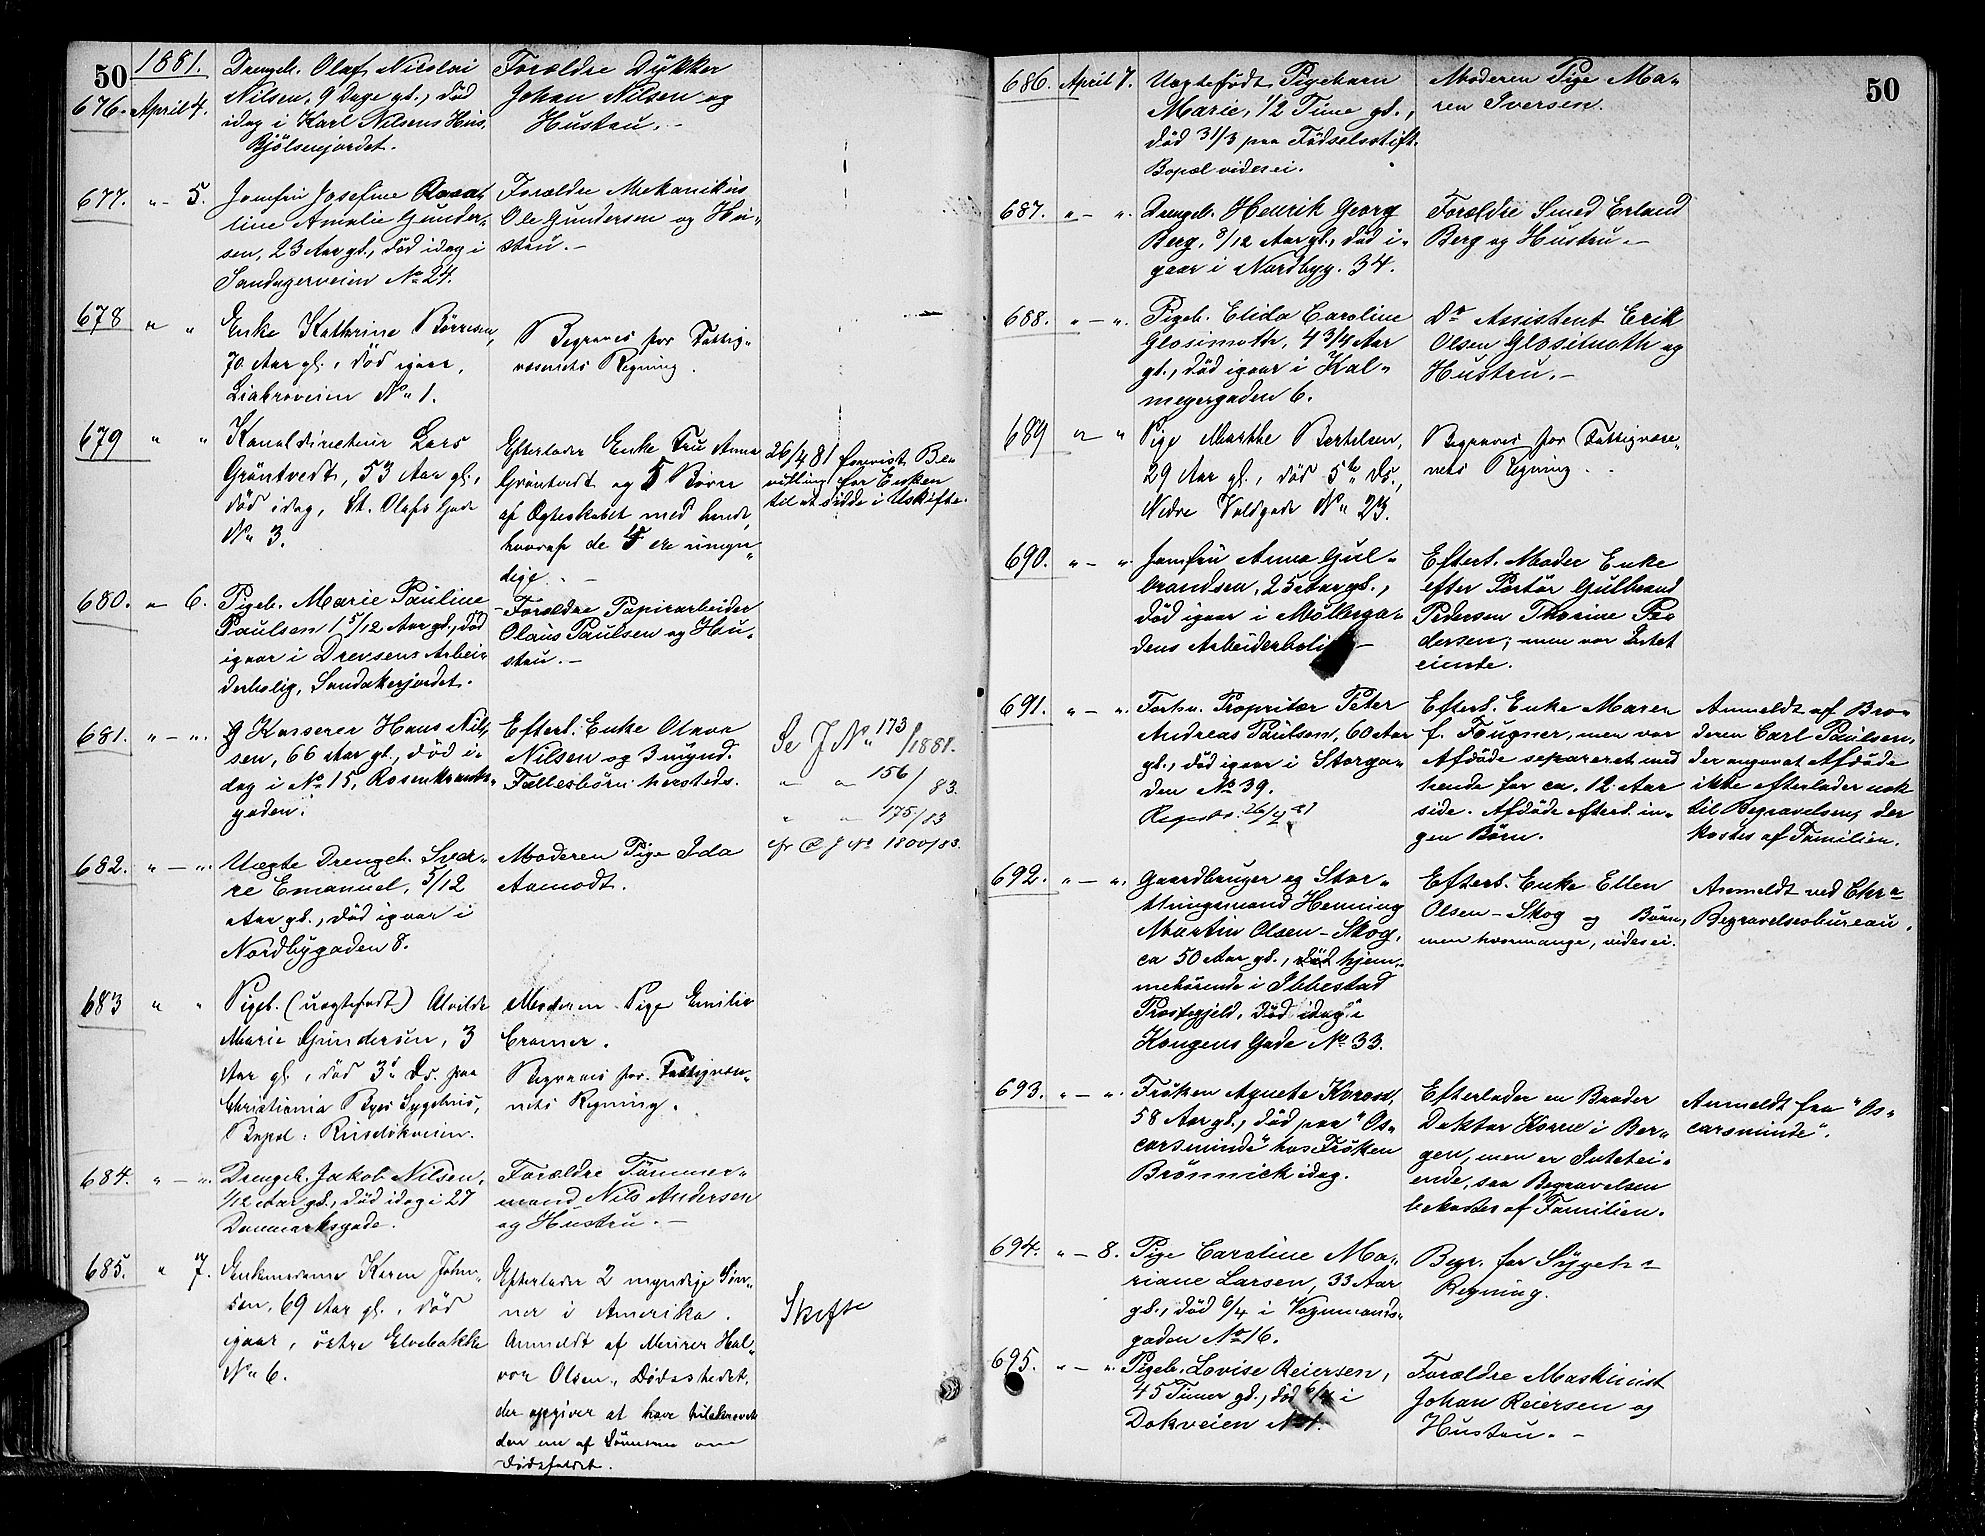 50
1881.
676. April 4.
Drengeb. Olaf Nicolai
Nilsen, 9 Dage gl., død
idag i Karl Nilsens Hus,
Bjölsenjordet.
Forældre Dykker
Johan Nilsen og
Hustru. –
677. " – 5.
Jomfru Josefine
line Amalie Gunder-
sen, 23 Aar gl., død idag i
Sandagerveien No 24.
Forældre Mekanikus
Ole Gundersen og Hu-
stru. –
678 " "
Enke Kathrine Börresen,
70 Aar gl., død igaar,
Liabroveien No 1.
Begraves for Fattig-
væsenets Regning.
679 " "
Kanaldirecteur Lars
Gröntvedt, 53 Aar gl.,
død idag, St. Olafs Gade
No 3.
Efterlader Enke Fru Anna
Gröntvedt og 5 Börn
af Ægteskabet med hende,
hvoraf de 5 ere umyn-
dige. –
26/4 81 forevist Be-
villing for Enken
til at sidde i Uskifte.
680. " – 6.
Pigeb. Marie Pauline
Paulsen 1 5/12 Aar gl., død
igaar i Drevsens Arbei-
derbolig, Sandakerjordet.
Forældre Papirarbeider
Olaus Paulsen og Hu-
stru. –
681. " – ".
Kasserer Hans Nil-
sen, 66 Aar gl., død i-
dag i No 15, Rosenkrantz-
gaden.
Efterl. Enke Olava
Nilsen og 3 mynd.
Fællesbörn hersteds.
Se J No 173/1881.
" " 156/83.
" " 175/83
cfr C J No 1800/83.
682. " – ".
Uægte Drengeb. Sver-
re Emanuel, 5/12
Aar gl., død igaar i
Nordbygaden 8.
Moderen Pige Ida
Aamodt.
683 " "
Pigeb. (uægtefødt) Alvilde
Marie Gundersen, 3
Aar gl., död 3d Ds. paa
Christiania Byes Sygehus,
Bopæl: Riisløkveien.
Moderen Pige Emilie
Cramer.
Begraves for Fattigvæse-
nets Regning.
684. " – ".
Drengeb. Jakob Nilsen,
1/12 Aar gl., død idag i 27
Danmarksgade.
Forældre Tømmer-
mand Nils Andersen
og Hustru. –
685. " 7.
Enkemadame Karen John-
sen, 69 Aar gl., død
igaar, östre Elvebakke
No 6.
Efterlader 2 myndige Søn-
ner i Amerika.
Anmeldt af Murer Hal-
vor Olsen, Dödsstedet,
der opgiver at have tilskrevet
den ene af Sönnerne om
Dödsfaldet.
Skifte
50
686. April 7.
Uægtefødt Pigebarn
Marie, 1/2 Time gl.,
død 31/3 paa Fødselsstift.
Bopæl vides ei.
Moderen Pige Ma-
ren Iversen.
687. " – ".
Drengeb. Henrik Georg
Berg, 8/12 Aar gl., død i-
gaar i Nordbyg. 34.
Forældre Smed Erland
Berg og Hustru. –
688. " – ".
Pigeb. Elida Caroline
Glosimoth, 4 3/4 Aar
gl., død igaar i Kal-
meyergaden 6.
Do Assistent Erik
Olsen Glosimoth og
Hustru. –
689 " "
Pige Marthe Bertelsen,
29 Aar gl., død 5te Ds.,
Nedre Voldgade No 23.
Begraves for Fattigvæse-
nets Regning.
690. " – ".
Jomfru Anna Gul-
brandsen, 25 Aar gl.,
død igaar i Møllerga-
dens Arbeiderbolig –
Efterl. Moder Enke
efter Portör Gulbrand
Pedersen Thorine Pe-
dersen; men var Intet
eiende.
691. " – ".
Forhv. Propritær Peter
Andreas Paulsen, 60 Aar
gl., død igaar i Storga-
den No 39.
26/4 81
Efterl. Enke Maren
f. Fougner, men var
Afdøde separeret med
hende for ca. 12 Aar
side. Afdøde efterl. in-
gen Börn.
Anmeldt af Bro-
deren Carl Paulsen,
der angav at Afdøde
ikke efterlader nok
til Begravelsen, der
kostes af Familien.
692. " – ".
Gaardbruger og Stor-
thingsmand Henning
Martin Olsen-Skog,
ca 50 Aar gl., død hjem-
mehörende i Ibbestad
Præstegjeld, død idag i
Kongens Gade No 33.
Efterl. Enke Ellen
Olsen-Skog og Börn,
men hvormange, vides ei.
Anmeldt ved Chra
Begravelsesbureau.
693. " – ".
Frøken Agnete Koren,
58 Aar gl., død paa "Os-
carsminde" hos Frøken
Brönnick idag.
Efterlader en Broder
Doktor Koren i Ber-
gen, men er Intet ei-
ende, saa Begravelsen
bekostes af Familien.
Anmeldt fra "Os-
carsminde".
694. " – 8.
Pige Caroline Ma-
riane Larsen, 33 Aar
gl., død 6/4 i Vognmands-
gaden No 16.
Begr. for Sygeh-s
Regning.
695. " – ".
Pigeb. Lovise Reiersen,
45 Timer gl., død 6/4 i
Dokveien No 1.
Forældre Maskinist
Johan Reiersen og
Hustru. –